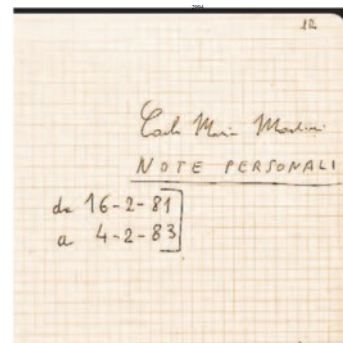 12
Carlo Maria Martini
NOTE PERSONALI
da 16-2-81
a 4-2-83